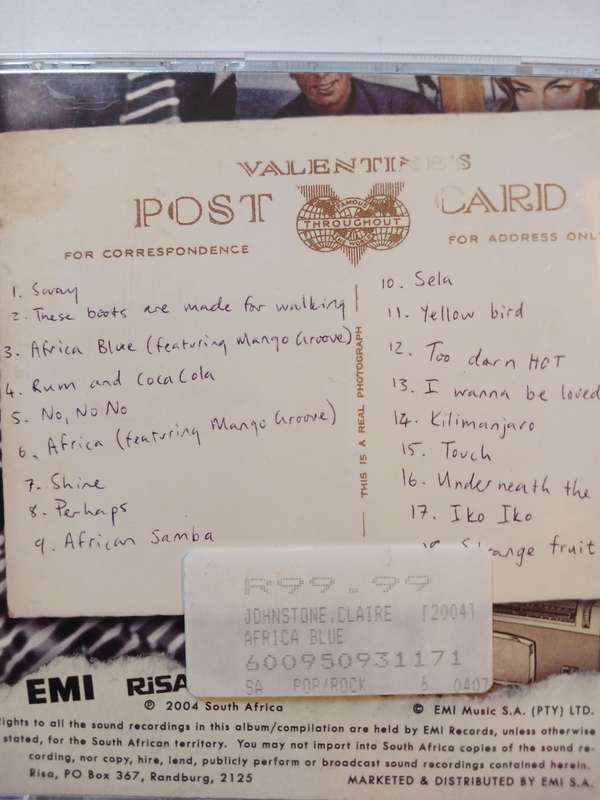 VALENTINE'S
POST CARD
FAMOUS
THROUGHOUT
THE WORLD
FOR CORRESPONDENCE
FOR ADDRESS ONL
1. Sway
2. These boots are made for walking
3. Africa Blue (featuring Mango Groove)
4. Rum and CocaCola
5. No, No No
6. Africa (featuring Mango Groove)
7. Shine
8. Perhaps
9. African Samba
THIS IS A REAL PHOTOGRAPH
10. Sela
11. Yellow bird
12. Too darn HOT
13. I wanna be loved
14. Kilimanjaro
15. Touch
16. Underneath the
17. Iko Iko
18. Strange fruit
R99.99
JOHNSTONE,CLAIRE [2004]
AFRICA BLUE
600950931171
SA POP/ROCK 6 0407
EMI RiSA
℗ 2004 South Africa
© EMI Music S.A. (PTY) LTD.
ights to all the sound recordings in this album/compilation are held by EMI Records, unless otherwise
stated, for the South African territory. You may not import into South Africa copies of the sound re-
cording, nor copy, hire, lend, publicly perform or broadcast sound recordings contained herein.
Risa, PO Box 367, Randburg, 2125
MARKETED & DISTRIBUTED BY EMI S.A.